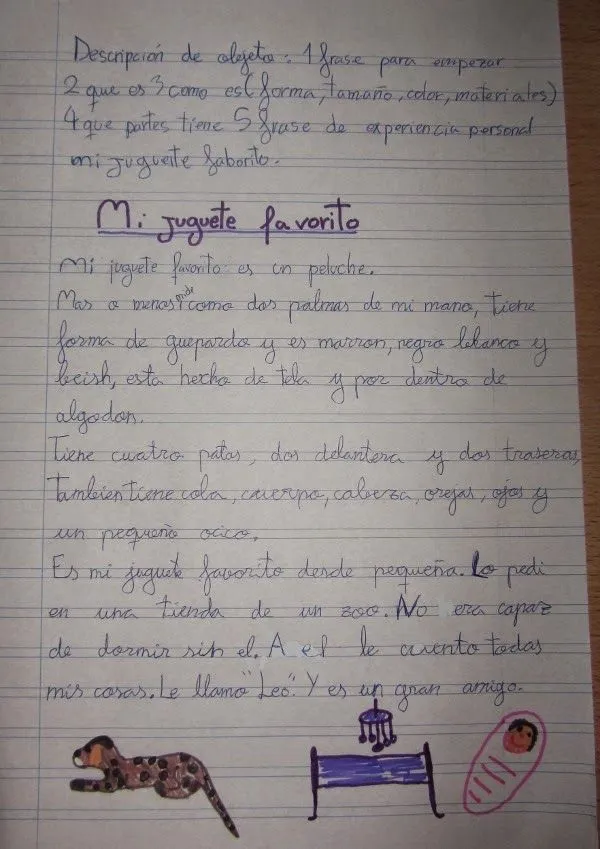 Descripción de objeto: 1 frase para empezar
2 que es 3 como es (forma, tamaño, color, materiales)
4 que partes tiene 5 frase de experiencia personal
mi juguete faborito.
Mi juguete favorito
Mi juguete favorito es un peluche.
Mas o menos mide como dos palmas de mi mano, tiene
forma de guepardo y es marron, negro blanco y
beish, esta hecho de tela y por dentro de
algodon.
Tiene cuatro patas, dos delantera y dos traseras,
Tambien tiene cola, cuerpo, cabeza, orejas, ojos y
un pequeño ocico.
Es mi juguete favorito desde pequeña. Lo pedi
en una tienda de un zoo. No era capaz
de dormir sin el. A el le cuento todas
mis cosas. Le llamo "Leo". Y es un gran amigo.